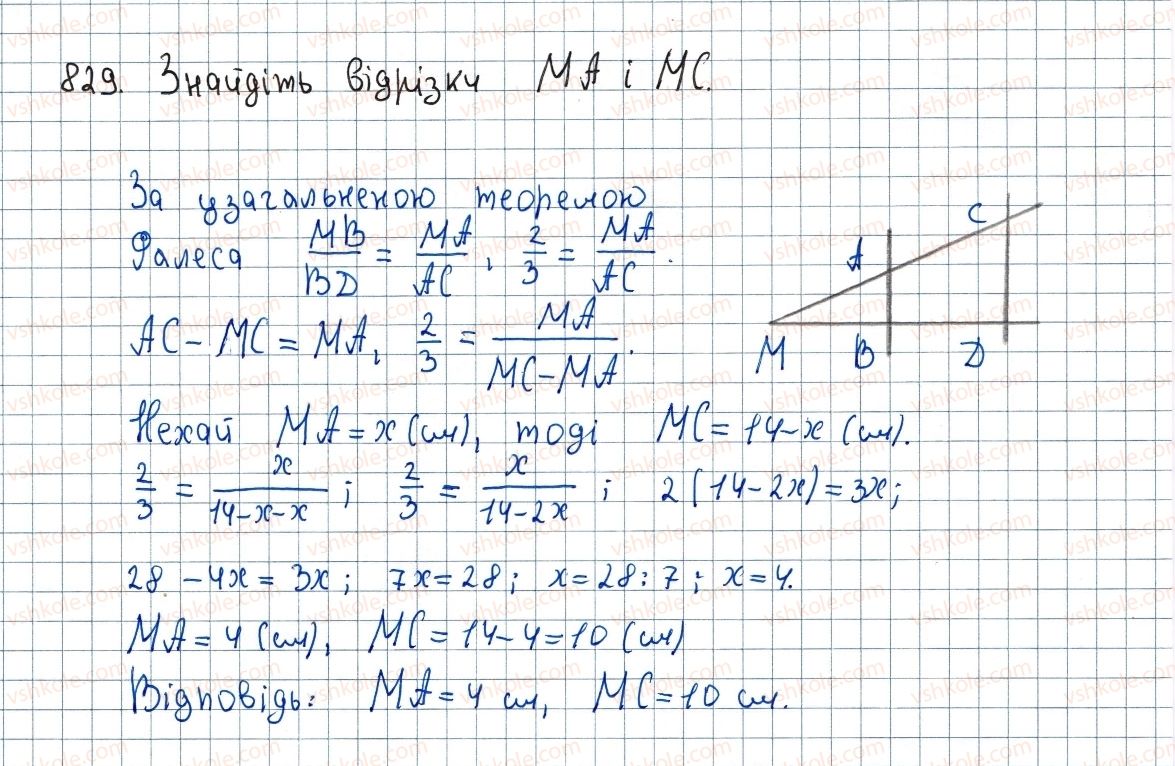 829. Знайдіть відрізки MA і MC.
За узагальненою теоремою
Фалеса MB/BD = MA/AC, 2/3 = MA/AC.
AC - MC = MA, 2/3 = MA/(MC - MA).
Нехай MA = x (см), тоді MC = 14 - x (см).
2/3 = x/(14 - x - x); 2/3 = x/(14 - 2x); 2(14 - 2x) = 3x;
28 - 4x = 3x; 7x = 28; x = 28 : 7; x = 4.
MA = 4 (см), MC = 14 - 4 = 10 (см)
Відповідь: MA = 4 см, MC = 10 см.
C
A
M B D
vshkole.com